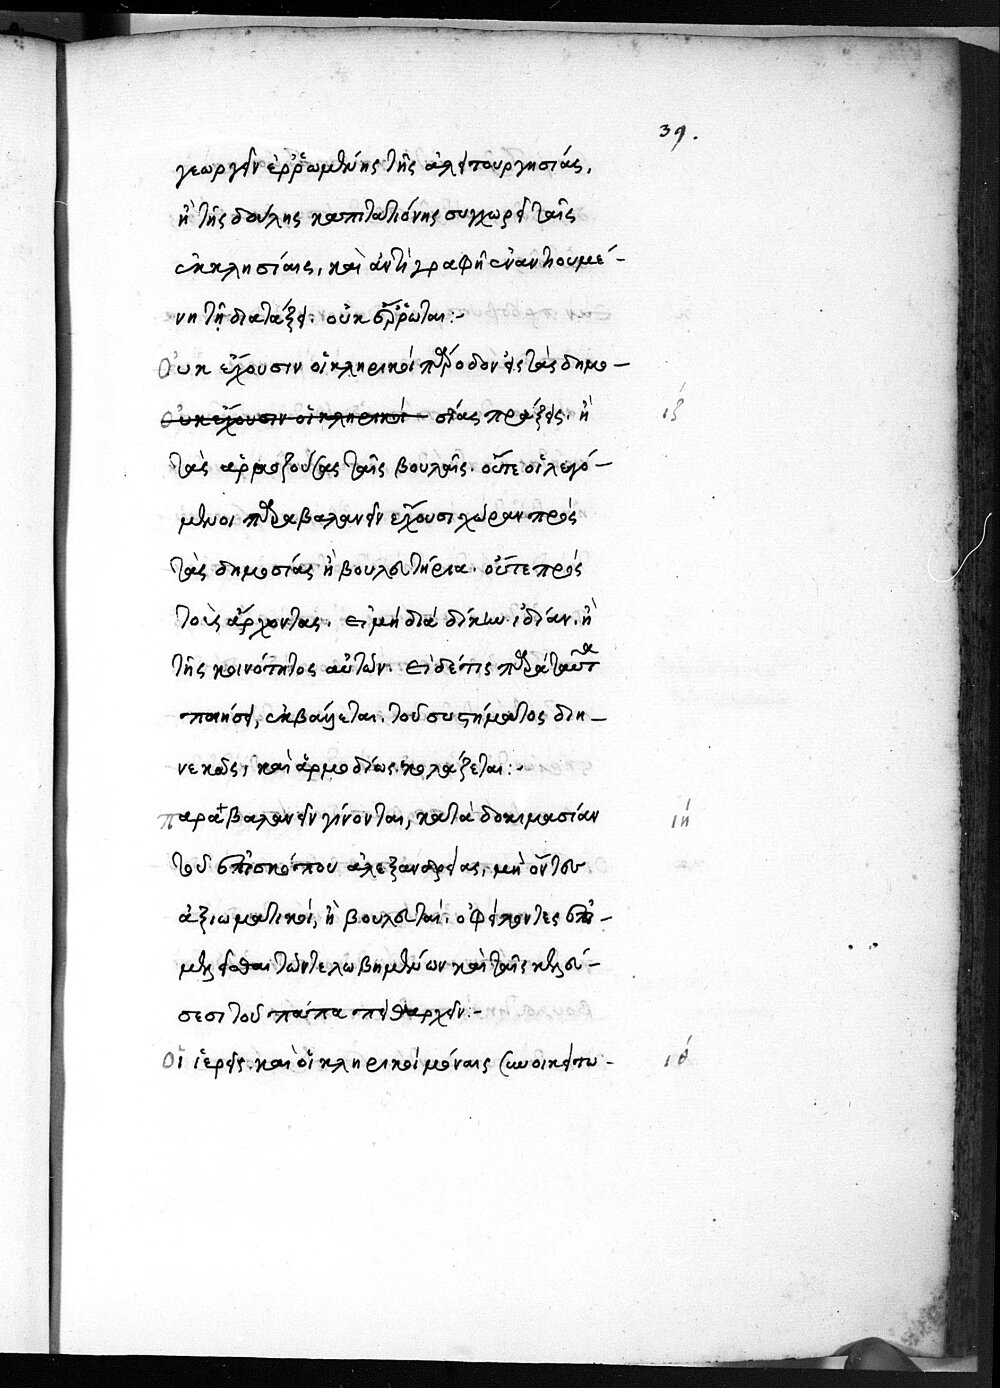 39.
γεωργεῖν ἐρρωμένης τῆς ἀλειτουργησίας,
ἢ τῆς δούλης καπιτατιόνης συγχωρεῖ ταῖς
ἐκκλησίαις, καὶ ἀντιγραφὴ ἐναντιουμέ-
νη τῇ διατάξει οὐκ ἔρρωται:-
Οὐκ ἔχουσιν οἱ κληρικοὶ πρόοδον εἰς τὰς δημο-
οὐκ ἔχουσιν οἱ κληρικοὶ σίας πράξεις. ἢ ιζ
τὰς ἁρμοζούσας ταῖς βουλαῖς. οὔτε οἱ λεγό-
μενοι παραβαλανεῖν ἔχουσι χώραν πρὸς
τὰς δημοσίας ἢ βουλευτήρια. οὔτε πρὸς
τοὺς ἄρχοντας. εἰ μὴ διὰ δίκην ἰδίαν. ἢ
τῆς κοινότητος αὐτῶν. εἰ δέ τις παρὰ ταῦτα
ποιήσει, ἐκβάλλεται τοῦ συστήματος διη-
νεκῶς, καὶ ἁρμοδίως κολάζεται:-
παραβαλανεῖν γίνονται, κατὰ δοκιμασίαν ιη
τοῦ ἐπισκόπου ἀλεξανδρείας, μὴ ὄντες
ἀξιωματικοὶ, ἢ βουλευταί. ὀφείλοντες ἐπι-
μελεῖσθαι τῶν τε λωβημένων καὶ ταῖς κελεύ-
σεσι τοῦ πάπα πειθαρχεῖν:-
Οἱ ἱερεῖς καὶ οἱ κληρικοὶ μόναις συνοικείτω- ιθ